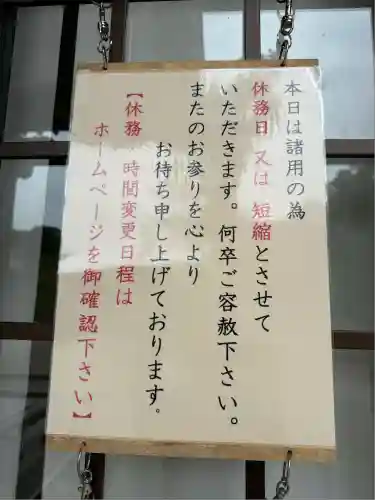 本日は諸用の為
休務日 又は 短縮とさせて
いただきます。何卒ご容赦下さい。
またのお参りを心より
お待ち申し上げております。
【休務・時間変更日程は
ホームページを御確認下さい】